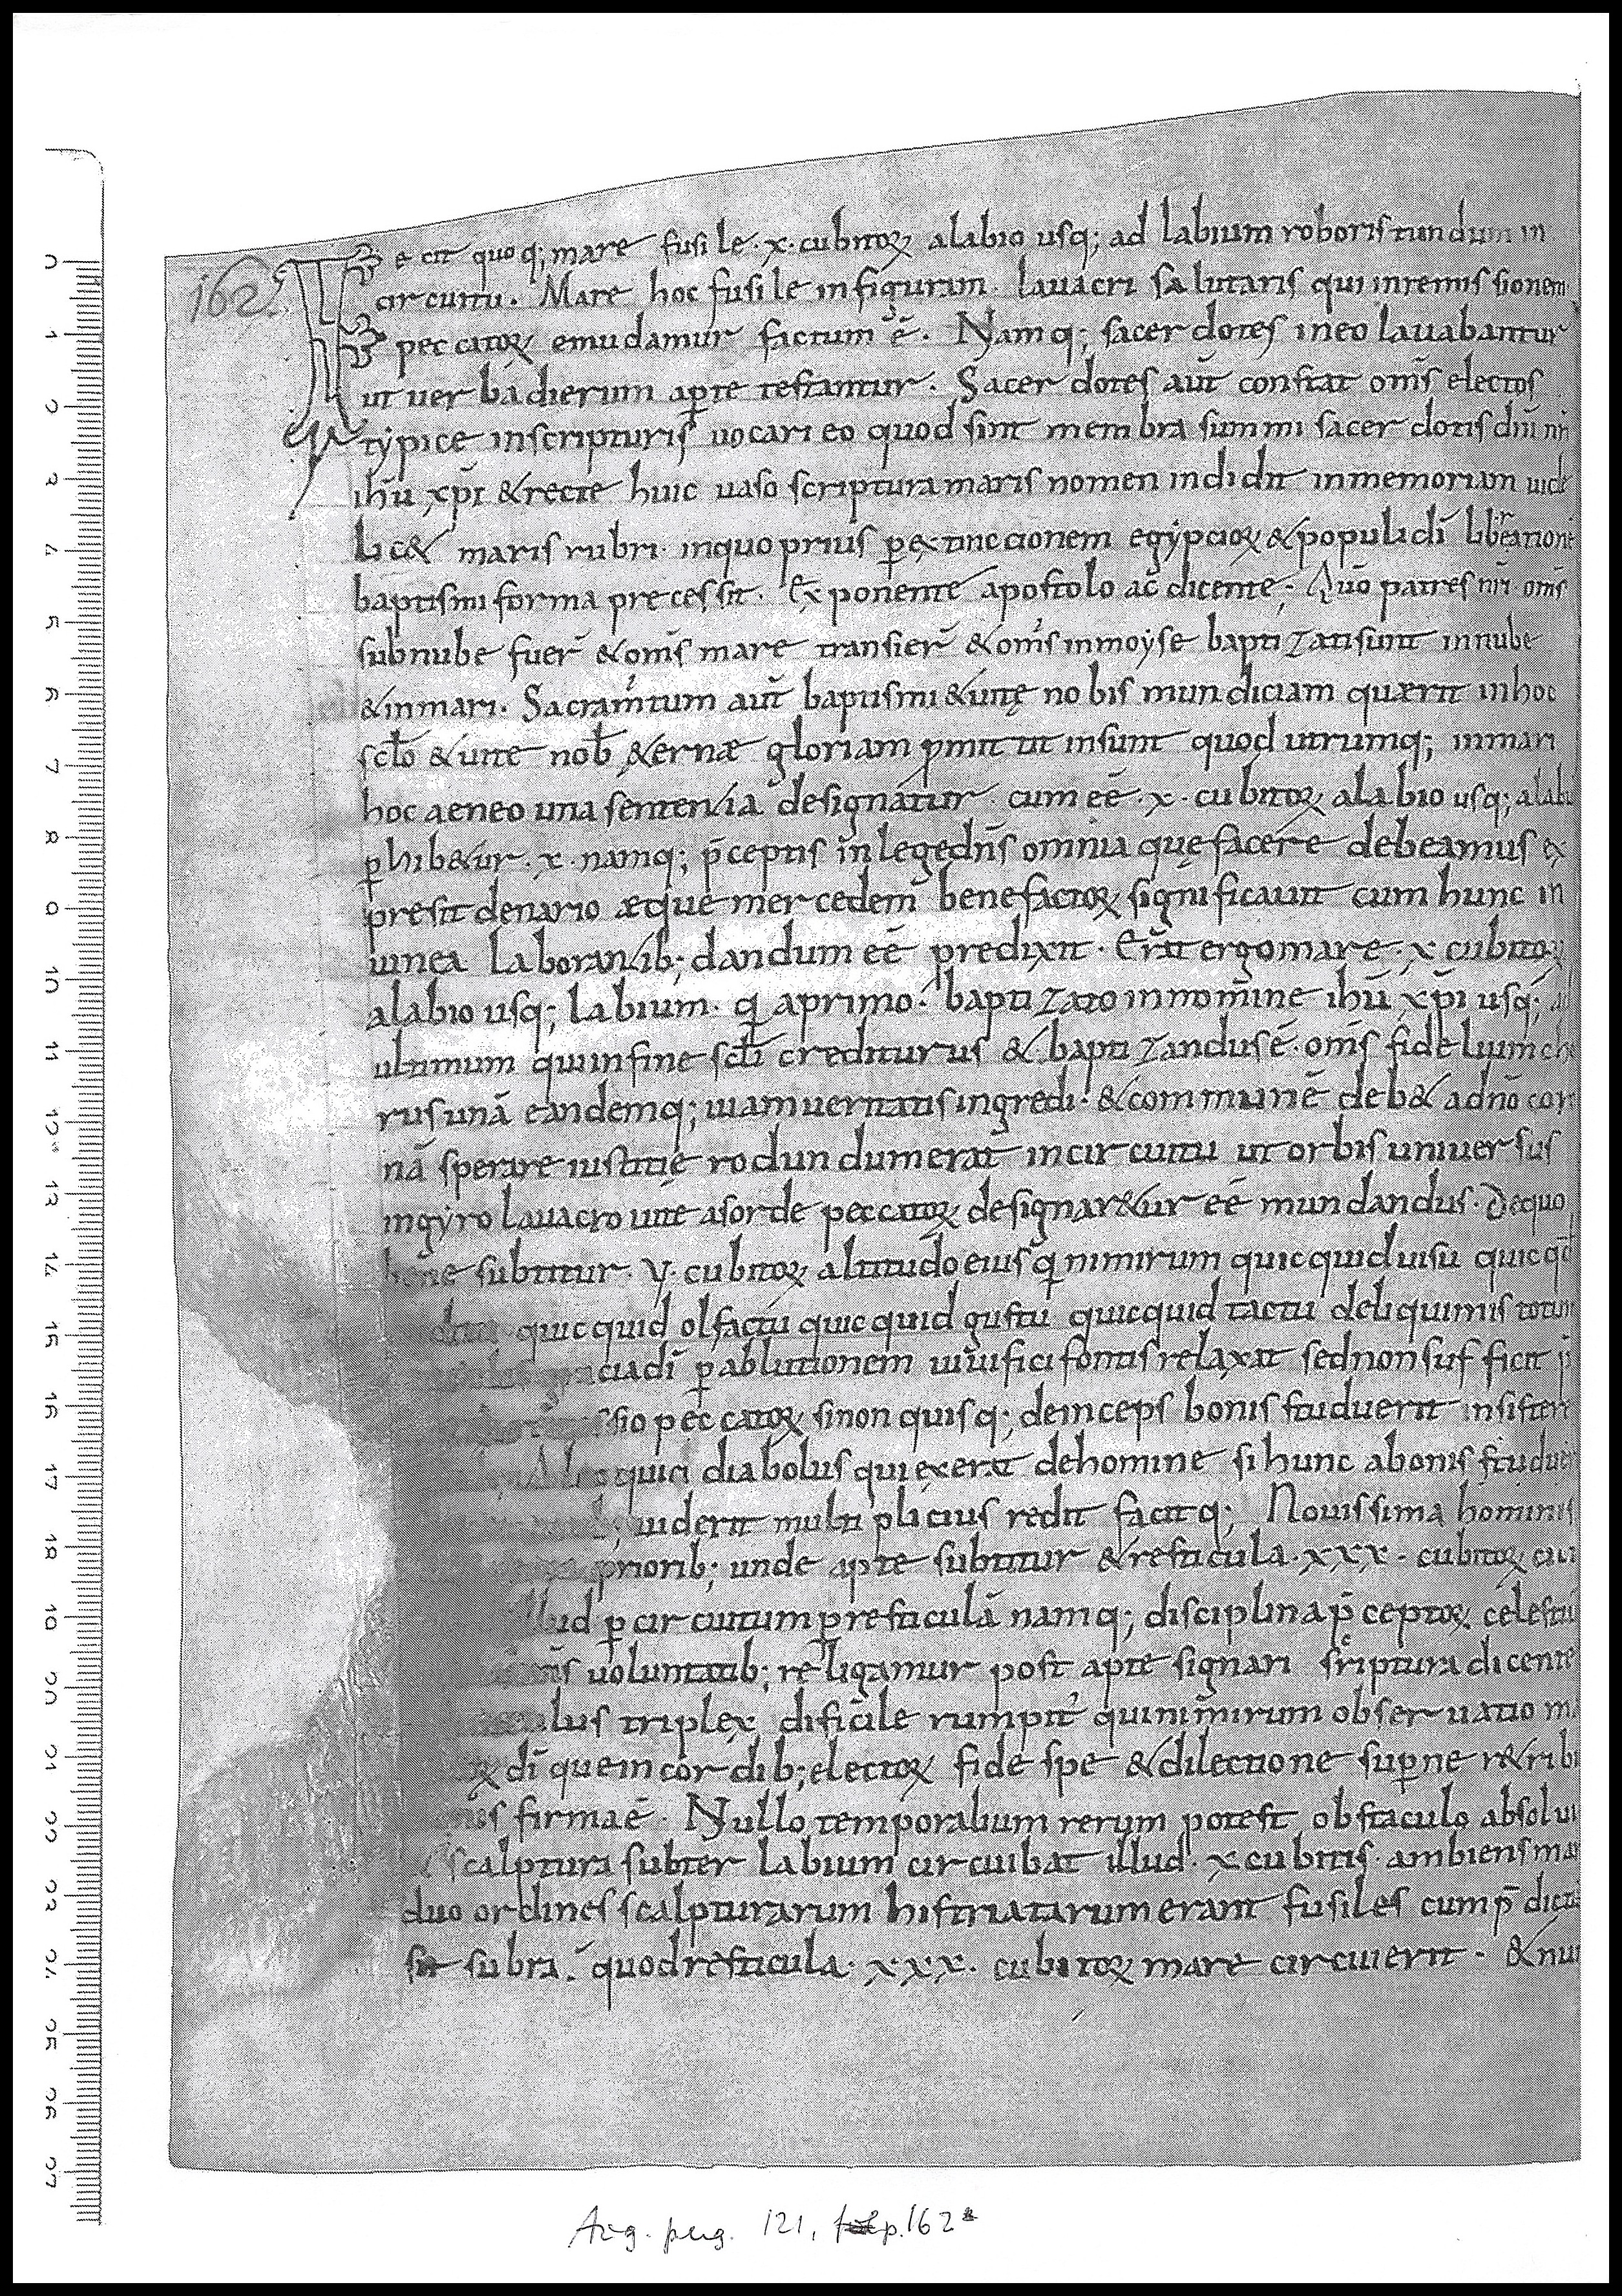 162.
Fecit quoq; mare fusile · x · cubitoꝝ alabio usq; ad labium roboris tundum in
circuitu. Mare hoc fusile infiguram lauacri salutaris qui inremissionem
peccatoꝝ emudamur factum ē. Namq; sacerdotes ineo lauabantur
ut uerba dierum aꝑte testantur. Sacerdotes aūt constat om̄s electos
typice inscripturis uocari eo quod sint membra summi sacerdotis dn̄i nr̄i
ihū xp̄i & recte huic uaso scriptura maris nomen indidit inmemoriam uide
lic& maris rubri inquo prius ꝑextinccionem egypcioꝝ & populi dī liberationē
baptismi forma precessit. Exponente apostolo ac̄ dicente; Quō patres nr̄i om̄s
subnube fuer̄ & om̄s mare transier̄ & om̄s inmoyse baptizati sunt innube
& inmari. Sacram̄tum aūt baptismi & uitę nobis mundiciam quærit inhoc
scl̄o & uite nob̄ &ernæ gloriam ꝓmittit insunt quod utrumq; inmari
hoc aeneo una sentenția designatur. cum eē · x · cubitoꝝ alabio usq; alabi
ꝑhib&ur · x · namq; p̄ceptis inlege dn̄s omnia que facere debeamus ex
presit denario æque mercedem benefactoꝝ significauit cum hunc in
uinea laborantib; dandum eē predixit. Erat ergo mare · x cubitoꝝ
alabio usq; labium · q̄ aprimo baptizato innomine ihū xp̄i usq; ad
ultimum qui infine scl̄i crediturus & baptizandus ē · om̄s fidelium cho
rus unā eandemq; uiam ueritatis ingredi · & communē deb& adnō coro
nā sperare iustitię rodundum erat incircuitu ut orbis uniuersus
ingyro lauacro uite asorde peccatoꝝ designar&ur eē mundandus. Dequo
bene subtitur · v · cubitoꝝ altitudo eius q̄ nimirum quicquid uisu quicqd
quicquid olfactu quicquid gustu quicquid tactu deliquimus totum
cia dī ꝑ ablutionem uiuifici fontis relaxat sed non sufficit
ssio peccatoꝝ sinon quisq; deinceps bonis studuerit insistere
quici diabolus qui exerat dehomine si hunc abonis studuer
uiderit multiplicius redit facitq; Nouissima hominis
priorib; unde apte subtitur & resticula · xxx · cubitoꝝ
illud ꝑ circuitum ꝑresticulā namq; disciplina p̄ceptoꝝ celestiū
uoluntatib; religamur post apte signari scriptura dicente
triplex dificile rumpit̄ qui nimirum obseruatio
dī que incordib; electoꝝ fide spe & dilectione suꝑne r&ribu
firma ē. Nullo temporalium rerum potest obstaculo absolui
scalptura subter labium circuibat illud · x cubitis · ambiens mar
duo ordines scalpturarum histriatarum erant fusiles cum p̄dictū
sit subra · quod resticula · xxx · cubitoꝝ mare circuierit · & nu
0
1
2
3
4
5
6
7
8
9
10
11
12
13
14
15
16
17
18
19
20
21
22
23
24
25
26
27
Aug. perg. 121, p. 162